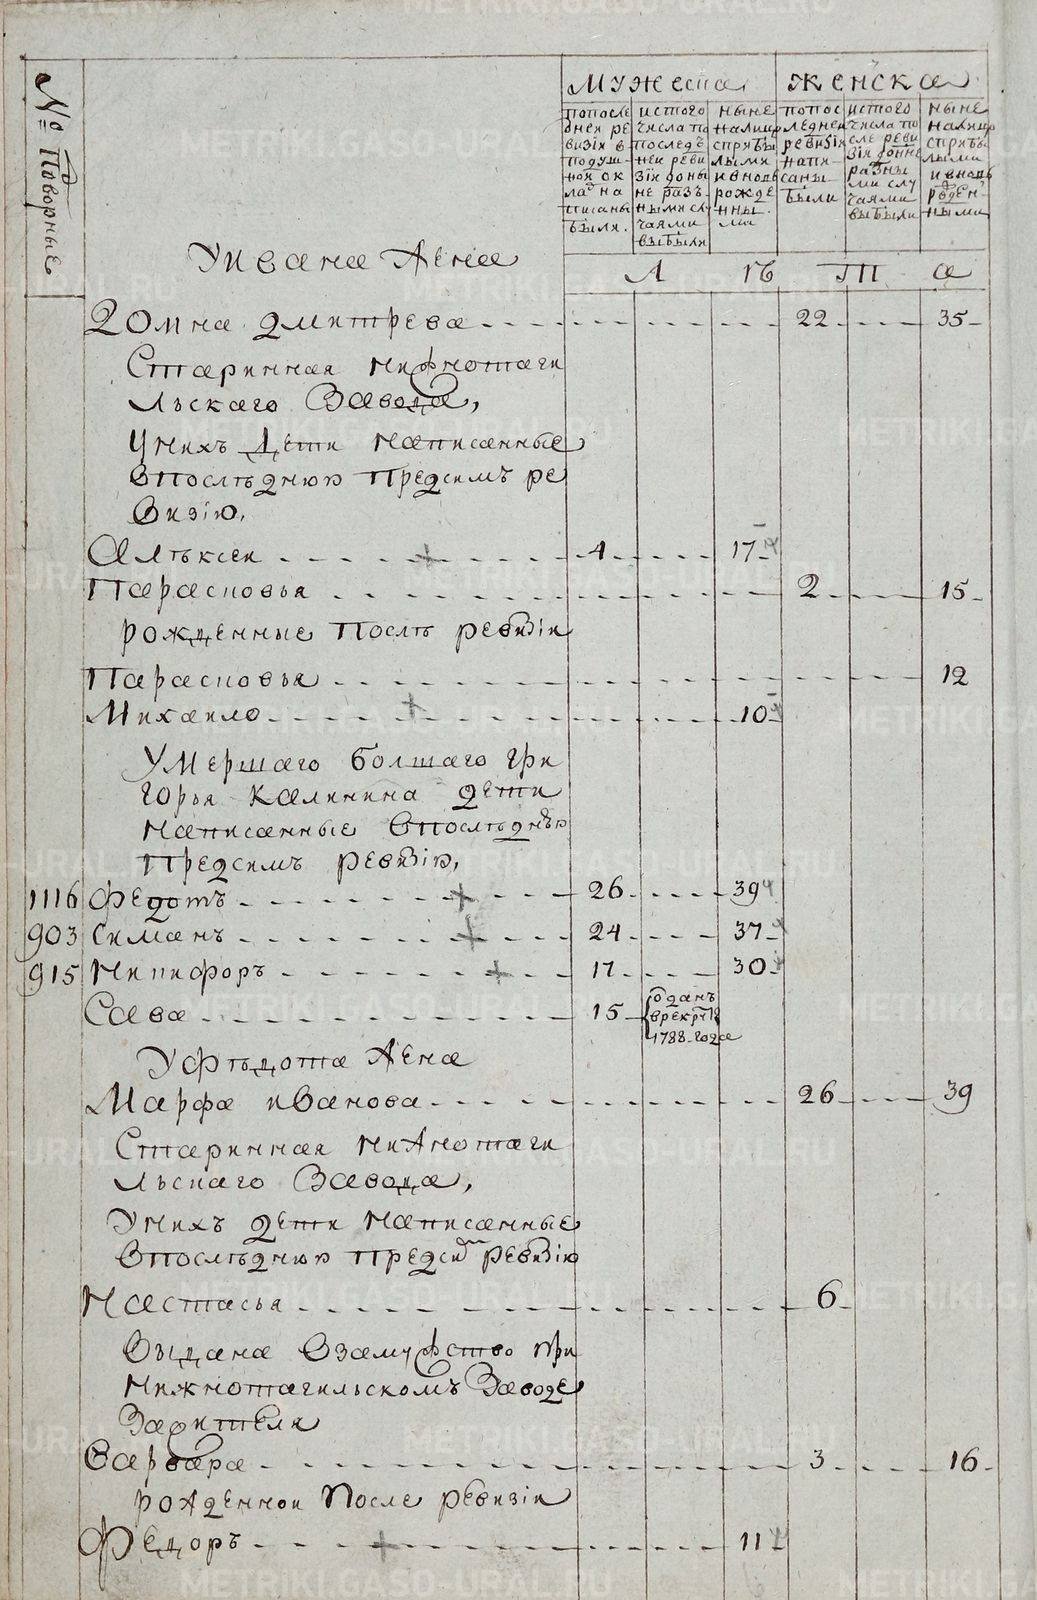 № Подворныя
Мужеска Женска
попосле дней ре визiи в подуш ной ок ладъ на писаны были.
истого числа по последъ ней реви зiи доны не разъ ными слу чаями выбыли
ныне налицо сприбы лыми ивновь рожде нны ми
попос ледней ревизiи напи саны были
истого числа по сле реви зiи доныне разны ми слу чаями выбыли
ныне налицо сприбы лыми ивновь рожден ными
Уивана Жена
Л ѣ т а
Домна дмитрева 22 35
Старинная нижнотаги
льскаго Завода,
Унихъ дети написанные
Впоследнюю предсимъ ре
визiю,
Алѣксеи 4 17
Парасковья 2 15
рожденные послѣ ревизiи
Парасковья 12
Михаило 10
Умершаго болшаго гри
горья калинина дети
написанные впослѣднюю
предсимъ ревизiю,
1116 Федотъ 26 39
903 Симанъ 24 37
915 Никифоръ 17 30
Сава 15 отданъ
врекруты
1788 года
Уфѣдота Жена
Марфа иванова 26 39
Старинная нижнотаги
льскаго Завода,
Унихъ дети написанные
Впослѣднюю предсимъ ревизiю
Настасья 6
Выдана Взамужство при
нижнотагильскомъ Заводе
Зажителя
Варвара 3 16
рожденной после ревизiи
Федоръ 11